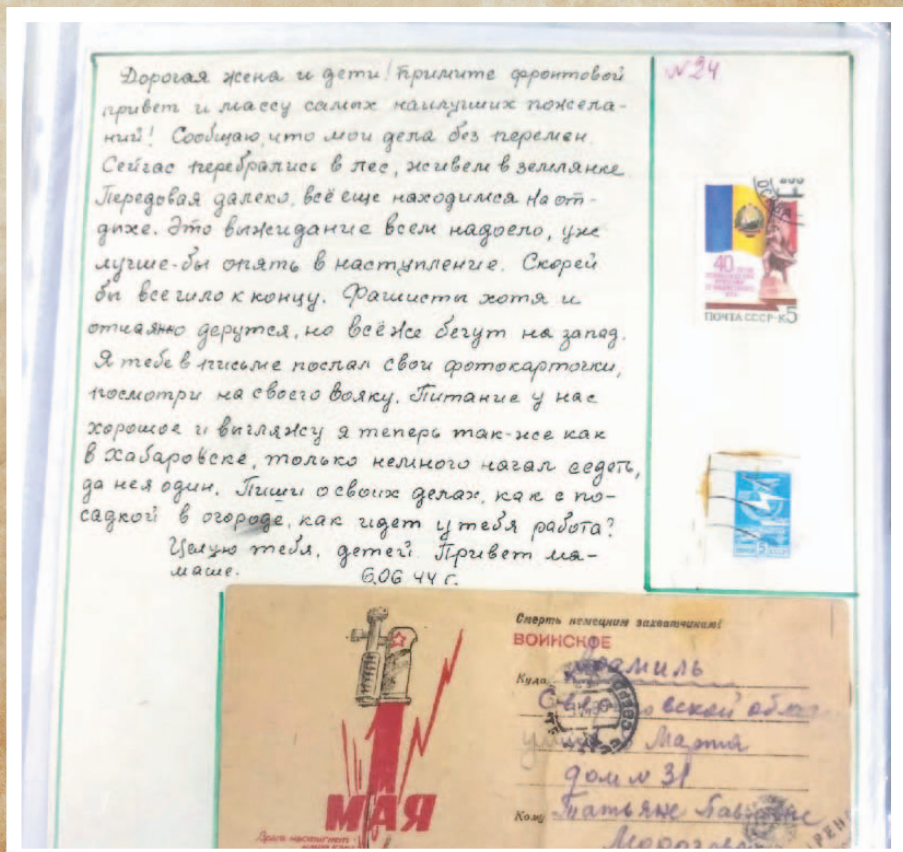 Дорогая жена и дети! Примите фронтовой
привет и массу самых наилучших пожела-
ний! Сообщаю, что мои дела без перемен.
Сейчас перебрались в лес, живем в землянке.
Передовая далеко, всё еще находимся на от-
дыхе. Это выжидание всем надоело, уже
лучше-бы опять в наступление. Скорей
бы все шло к концу. Фашисты хотя и
отчаянно дерутся, но всё же бегут на запад.
Я тебе в письме послал свои фотокарточки,
посмотри на своего вояку. Питание у нас
хорошое и выгляжу я теперь так-же как
в Хабаровске, только немного начал седеть,
да не я один. Пиши о своих делах, как с по-
садкой в огороде, как идет у тебя работа?
Целую тебя, детей. Привет ма-
маше.
6.06 44 г.
№24
40
ПОЧТА СССР·К5
5
Смерть немецким захватчикам!
ВОИНСКОЕ
Куда
1 МАЯ
Марта
дом № 31
Кому Татьяне